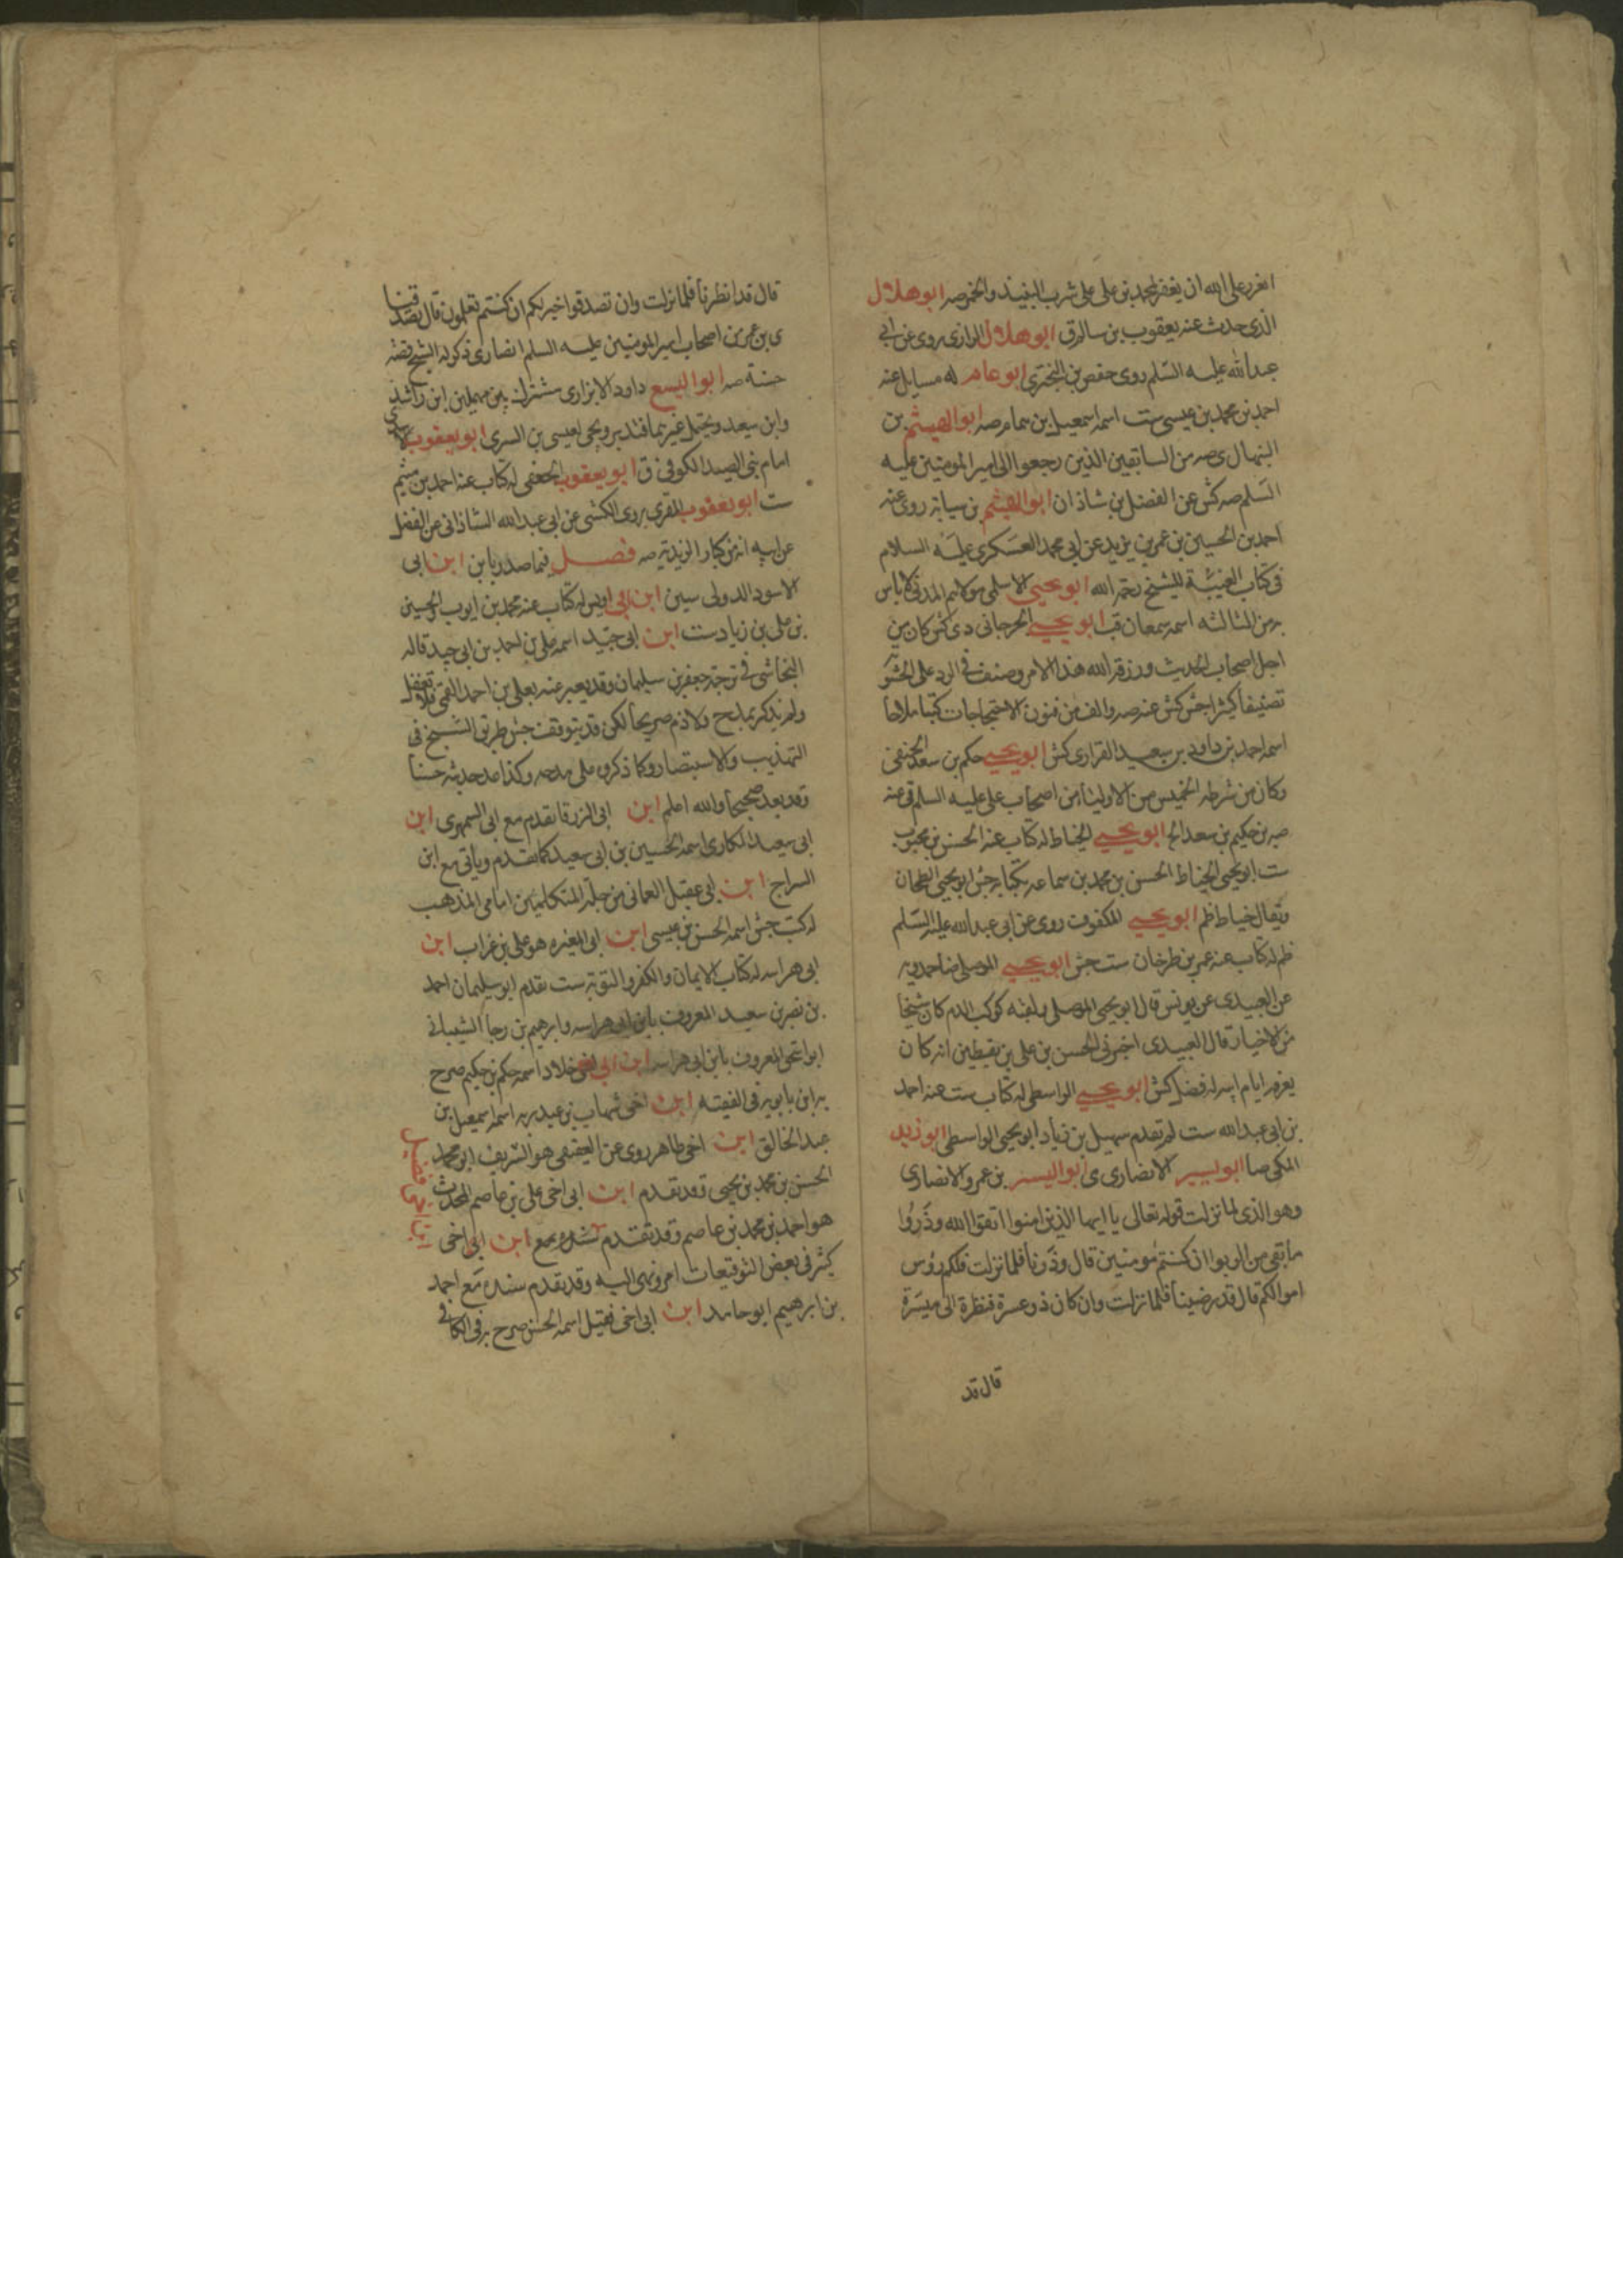 اتعز على الله ان يغفر لمحمد بن على على شرب النبيذ والخمر صه ابو هلال
الذى حدث عنه يعقوب بن سالم ق ابو هلال الرازى روى عن ابى
عبد الله عليه السلم روى حفص بن البخترى ابو همام له مسايل عنه
احمد بن محمد بن عيسى ست اسمه اسمعيل بن همام صه ابو الهيثم بن
التيهال ى صه من السابقين الذين رجعوا الى امير المومنين عليه
السلم صه كش عن الفضل بن شاذان ابو الهيثم بن سيابه روى عنه
احمد بن الحسين بن عمر بن يزيد عن ابى محمد العسكرى عليه السلام
فى كتاب الغيبة للشيخ رحمه الله ابو يحيى الاسلمى مولاهم المدنى لاباس
به من الثالثه اسمه سمعان قب ابو يحيى الجرجانى دى كش كان من
اجل اصحاب الحديث ورزقه الله هذا الامر وصنف فى الرد على الحشويه
تصنيفا كثيرا جش كش عنه صه والف من فنون الاحتجاجات كتبا ملاحا
اسمه احمد بن داود بن سعيد الفزارى كش ابو يحيى حكم بن سعد الحنفى
وكان من شرطه الخميس من الاولياء من اصحاب على عليه السلم ق عنه
صه بن حكيم بن سعد الخ ابو يحيى الحناط له كتاب عنه الحسن بن محبوب
ست ابو يحيى الحناط الحسن بن محمد بن سماعه بكتابه جش ابو يحيى الطحان
ويقال خياط ظم ابو يحيى المكفوف روى عن ابى عبد الله عليه السلم
ظم له كتاب عنه عمر بن طرخان ست جش ابو يحيى الموصلى ضا حمدويه
عن العبيدى عن يونس قال ابو يحيى الموصلى ولقبه كوكب الدم كان شيخا
من الاخيار قال العبيدى اخبرنى الحسن بن على بن يقطين انه كان
يعرفه ايام ابيه له فضل كش ابو يحيى الواسطى له كتاب ست عنه احمد
بن ابى عبد الله ست لم تقدم سهيل بن زياد ابو يحيى الواسطى ابو زيد
المكى صا ابو يسير الانصارى ى ابو اليسر بن عمرو الانصارى
وهو الذى لما نزلت قوله تعالى يا ايها الذين امنوا اتقوا الله وذروا
ما بقى من الربوا ان كنتم مومنين قال وذرنا فلما نزلت فلكم رؤس
اموالكم قال قد رضينا فلما نزلت وان كان ذو عسرة فنظرة الى ميسرة
قال قد
قال قد انظرنا فلما نزلت وان تصدقوا خير لكم ان كنتم تعلمون قال تصدقنا
ى بن عمر من اصحاب امير المومنين عليه السلم انصارى ذكر له الشيخ قصة
حسنة صه ابو اليسع داود الابزارى مشترك بين مهملين ابن راشد
وابن سعيد ويحتمل غيرهما فتدبر ويجى لعيسى بن السرى ابو يعقوب الاسدى
امام بنى الصيدا الكوفى ق ابو يعقوب الجعفى له كتاب عنه احمد بن ميثم
ست ابو يعقوب المقرى روى الكشى عن ابى عبد الله الشاذانى عن الفضل
عن ابيه انه من كبار الزيدية صه فصل فيما صدر بابن ابن ابى
الاسود الدولى سين ابن ابى اويس له كتاب عنه محمد بن ايوب والحسين
بن على بن زياد ست ابن ابى جيد اسمه على بن احمد بن ابى جيد قاله
النجاشى فى ترجمة جعفر بن سليمان وقد يعبر عنه بعلى بن احمد القمى فلا تغفل
ولم يذكر بمدح ولا ذم صريحا لكن قد يتوقف جش طريق الشيخ فى
التهذيب والاستبصار وكا ذكره على مدحه وكذا عد حديثه حسنا
وقد يعد صحيحا والله اعلم ابن ابى الزرقا تقدم مع ابى السمهرى ابن
ابى سعيد المكارى اسمه الحسين بن ابى سعيد كما تقدم وياتى مع ابن
السراج ابن ابى عقيل العمانى من جلة المتكلمين امامى المذهب
له كتب جش اسمه الحسن بن عيسى ابن ابى المغيره هو على بن غراب ابن
ابى هراسه له كتاب الايمان والكفر والتوبة ست تقدم ابو سليمان احمد
بن نصر بن سعيد المعروف بابن ابى هراسه وابرهيم بن رجا الشيبانى
ابو اسحق المعروف بابن ابى هراسه ابن ابى اخى خلاد اسمه حكم بن حكيم صرح
به ابن بابويه فى الفقيه ابن اخى شهاب بن عبد ربه اسمه اسمعيل بن
عبد الخالق ابن اخى طاهر روى عن العقيقى هو الشريف ابو محمد
الحسن بن محمد بن يحيى وقد تقدم ابن ابى اخى على بن عاصم المحدث
هو احمد بن محمد بن عاصم وقد تقدم سنده مع ابن ابى اخى
كثير فى بعض التوقيعات امر ونهى اليه وقد تقدم سنده مع احمد
بن ابرهيم ابو حامد ابن ابى اخى فضيل اسمه الحسن صرح به فى الكافى